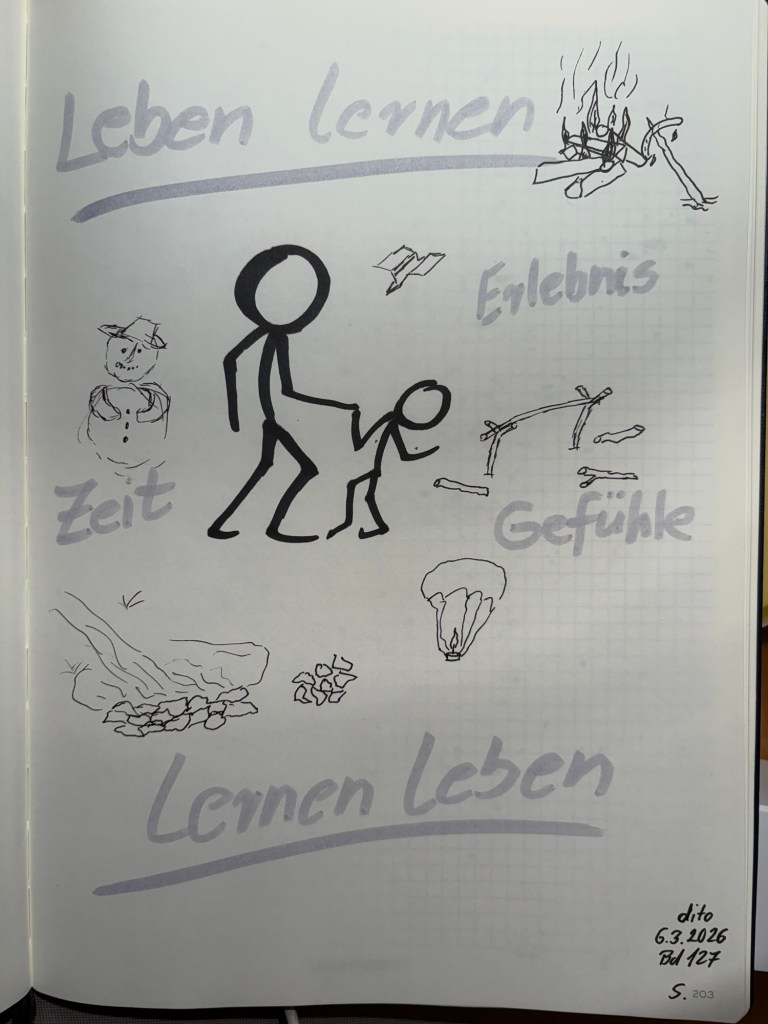 Leben lernen
Erlebnis
Zeit
Gefühle
Lernen leben
dito
6.3.2026
Bd 127
S. 203